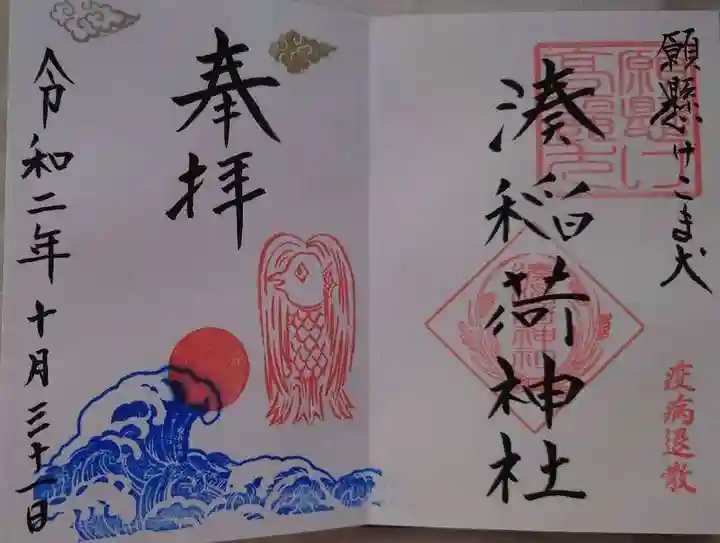 願懸けこま犬
湊稲荷神社
疫病退散
奉拝
令和二年十月三十一日